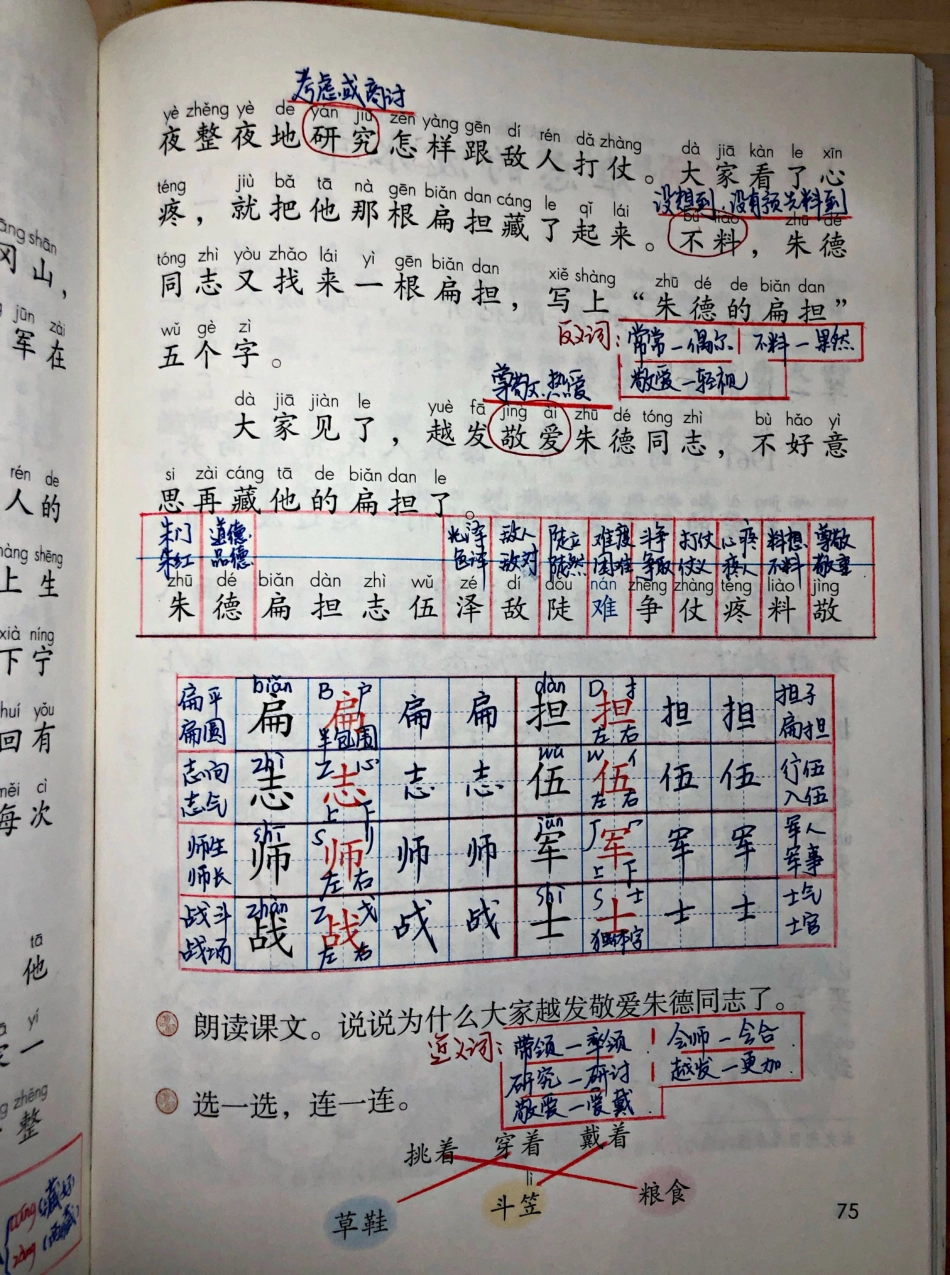 考虑或商讨
yè zhěng yè de yán jiū zěn yàng gēn dí rén dǎ zhàng dà jiā kàn le xīn
夜整夜地研究怎样跟敌人打仗。大家看了心
没想到.没有预先料到
téng jiù bǎ tā nà gēn biǎn dan cáng le qǐ lái bú liào zhū dé
疼，就把他那根扁担藏了起来。不料，朱德
tóng zhì yòu zhǎo lái yì gēn biǎn dan xiě shàng zhū dé de biǎn dan
同志又找来一根扁担，写上“朱德的扁担”
wǔ gè zì
五个字。
反义词：常常—偶尔 不料—果然
敬爱—轻视
尊敬.热爱
dà jiā jiàn le yuè fā jìng ài zhū dé tóng zhì bù hǎo yì
大家见了，越发敬爱朱德同志，不好意
si zài cáng tā de biǎn dan le
思再藏他的扁担了。
朱门 道德 光泽 敌人 陡立 难度 斗争 打仗 心疼 料想 尊敬
朱红 品德 色泽 敌对 陡然 困难 争取 仗义 疼人 不料 敬重
zhū dé biǎn dàn zhì wǔ zé dí dǒu nán zhēng zhàng téng liào jìng
朱 德 扁 担 志 伍 泽 敌 陡 难 争 仗 疼 料 敬
扁平 biǎn B 户 dàn D 扌 担子
扁圆 扁 扁 扁 扁 担 担 担 担 扁担
半包围 左右
志向 zhì Z 心 wǔ W 亻 行伍
志气 志 志 志 志 伍 伍 伍 伍 入伍
上下 左右
师生 shī S jūn J 冖 军人
师长 师 师 师 师 军 军 军 军 军事
左右 上下
战斗 zhàn Z 戈 shì S 士 士气
战场 战 战 战 战 士 士 士 士 士官
左右 独体字
朗读课文。说说为什么大家越发敬爱朱德同志了。
近义词：带领—率领 会师—会合
研究—研讨 越发—更加
敬爱—爱戴
选一选，连一连。
挑着 穿着 戴着
lì
草鞋 斗笠 粮食
75
āng shān
冈山，
jūn zài
军在
rén de
人的
shàng shēng
上生
xià níng
下宁
huí yǒu
回有
měi cì
每次
tā
他
yí
一
zhěng
整
cáng(藏好)
zàng(西藏)